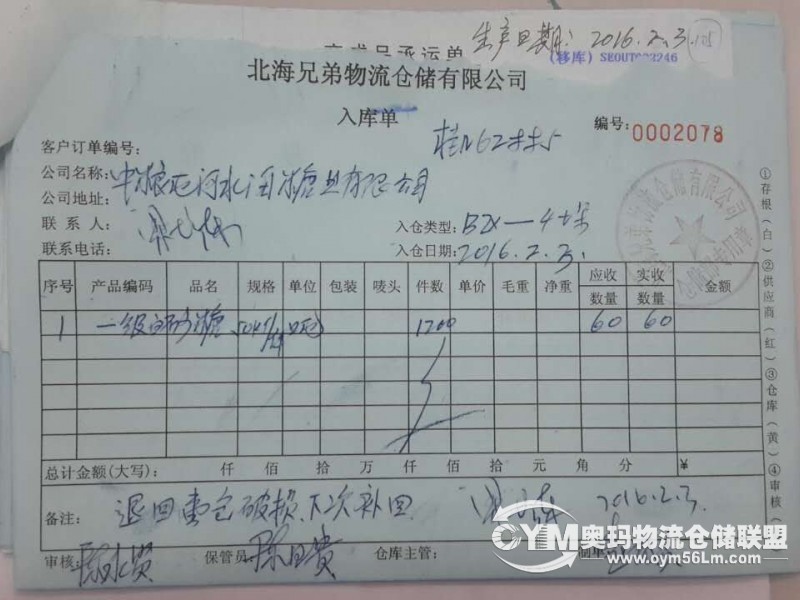 生产日期: 2016.2.3.
完成品承运单
(移库) SEOUT
北海兄弟物流仓储有限公司
入库单
编号: 0002078
客户订单编号:
公司名称: 中粮屯河水润糖业有限公司
公司地址:
联系人:
入仓类型:
联系电话:
入仓日期: 2016.2.3.
序号 产品编码 品名 规格 单位 包装 唛头 件数 单价 毛重 净重 应收数量 实收数量 金额
1 一级白砂糖 1200 60 60
总计金额(大写): 仟 佰 拾 万 仟 佰 拾 元 角 分 ¥
备注: 退回 包破损、下次补回 2016.2.3
审核: 保管员 陈日贵 仓库主管: 制单
①存根(白)②供应商(红)③仓库(黄)④审核(
OYM 奥玛物流仓储联盟
www.oym56Lm.com